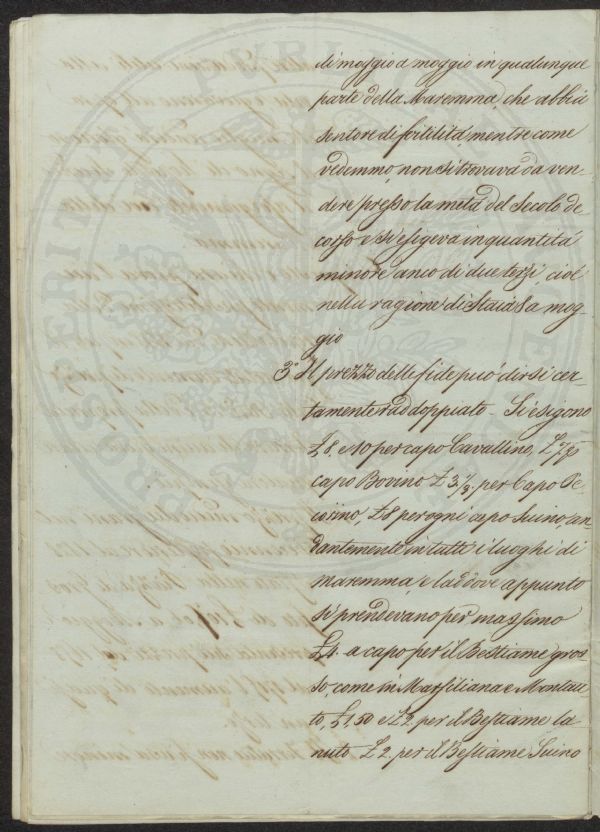 di moggio a moggio in qualunque
parte della Maremma, che abbia
sentore di fertilità, mentre come
vedemmo, non si trovava da ven-
dere presso la metà del Secolo de
corso e si esigeva in quantità
minore anco di due terzi, cioè
nella ragione di Staia 8 a mog-
gio
3° Il prezzo delle fide può dirsi cer-
tamente raddoppiato - Si esigono
£ 8. e 10 per capo Cavallino, £ 7 p
capo Bovino £ 3⅓ per Capo Pe-
corino, £ 8 per ogni capo Suino an-
dantemente in tutti i luoghi di
maremma, e laddove appunto
si prendevano per massimo
£ 4. a capo per il Bestiame gros-
so, come in Marsiliana e Montau-
to, £ 1.50 e £ 2. per il Bestiame la-
nuto £ 2. per il Bestiame Suino
PROSPERITATI PUBLICAE